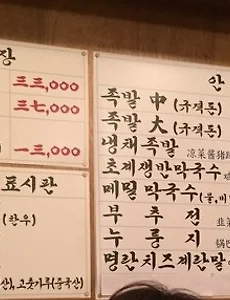 장
三三,000
三七,000
一三,000
표시판
(한우)
산), 고춧가루(중국산)
안
족발 中 (규격돈)
족발 大 (규격돈)
냉채족발 凉菜醬猪蹄
초계쟁반막국수
메밀막국수 (물,비
부추전 韭菜
누룽지 锅巴
명란치즈계란말